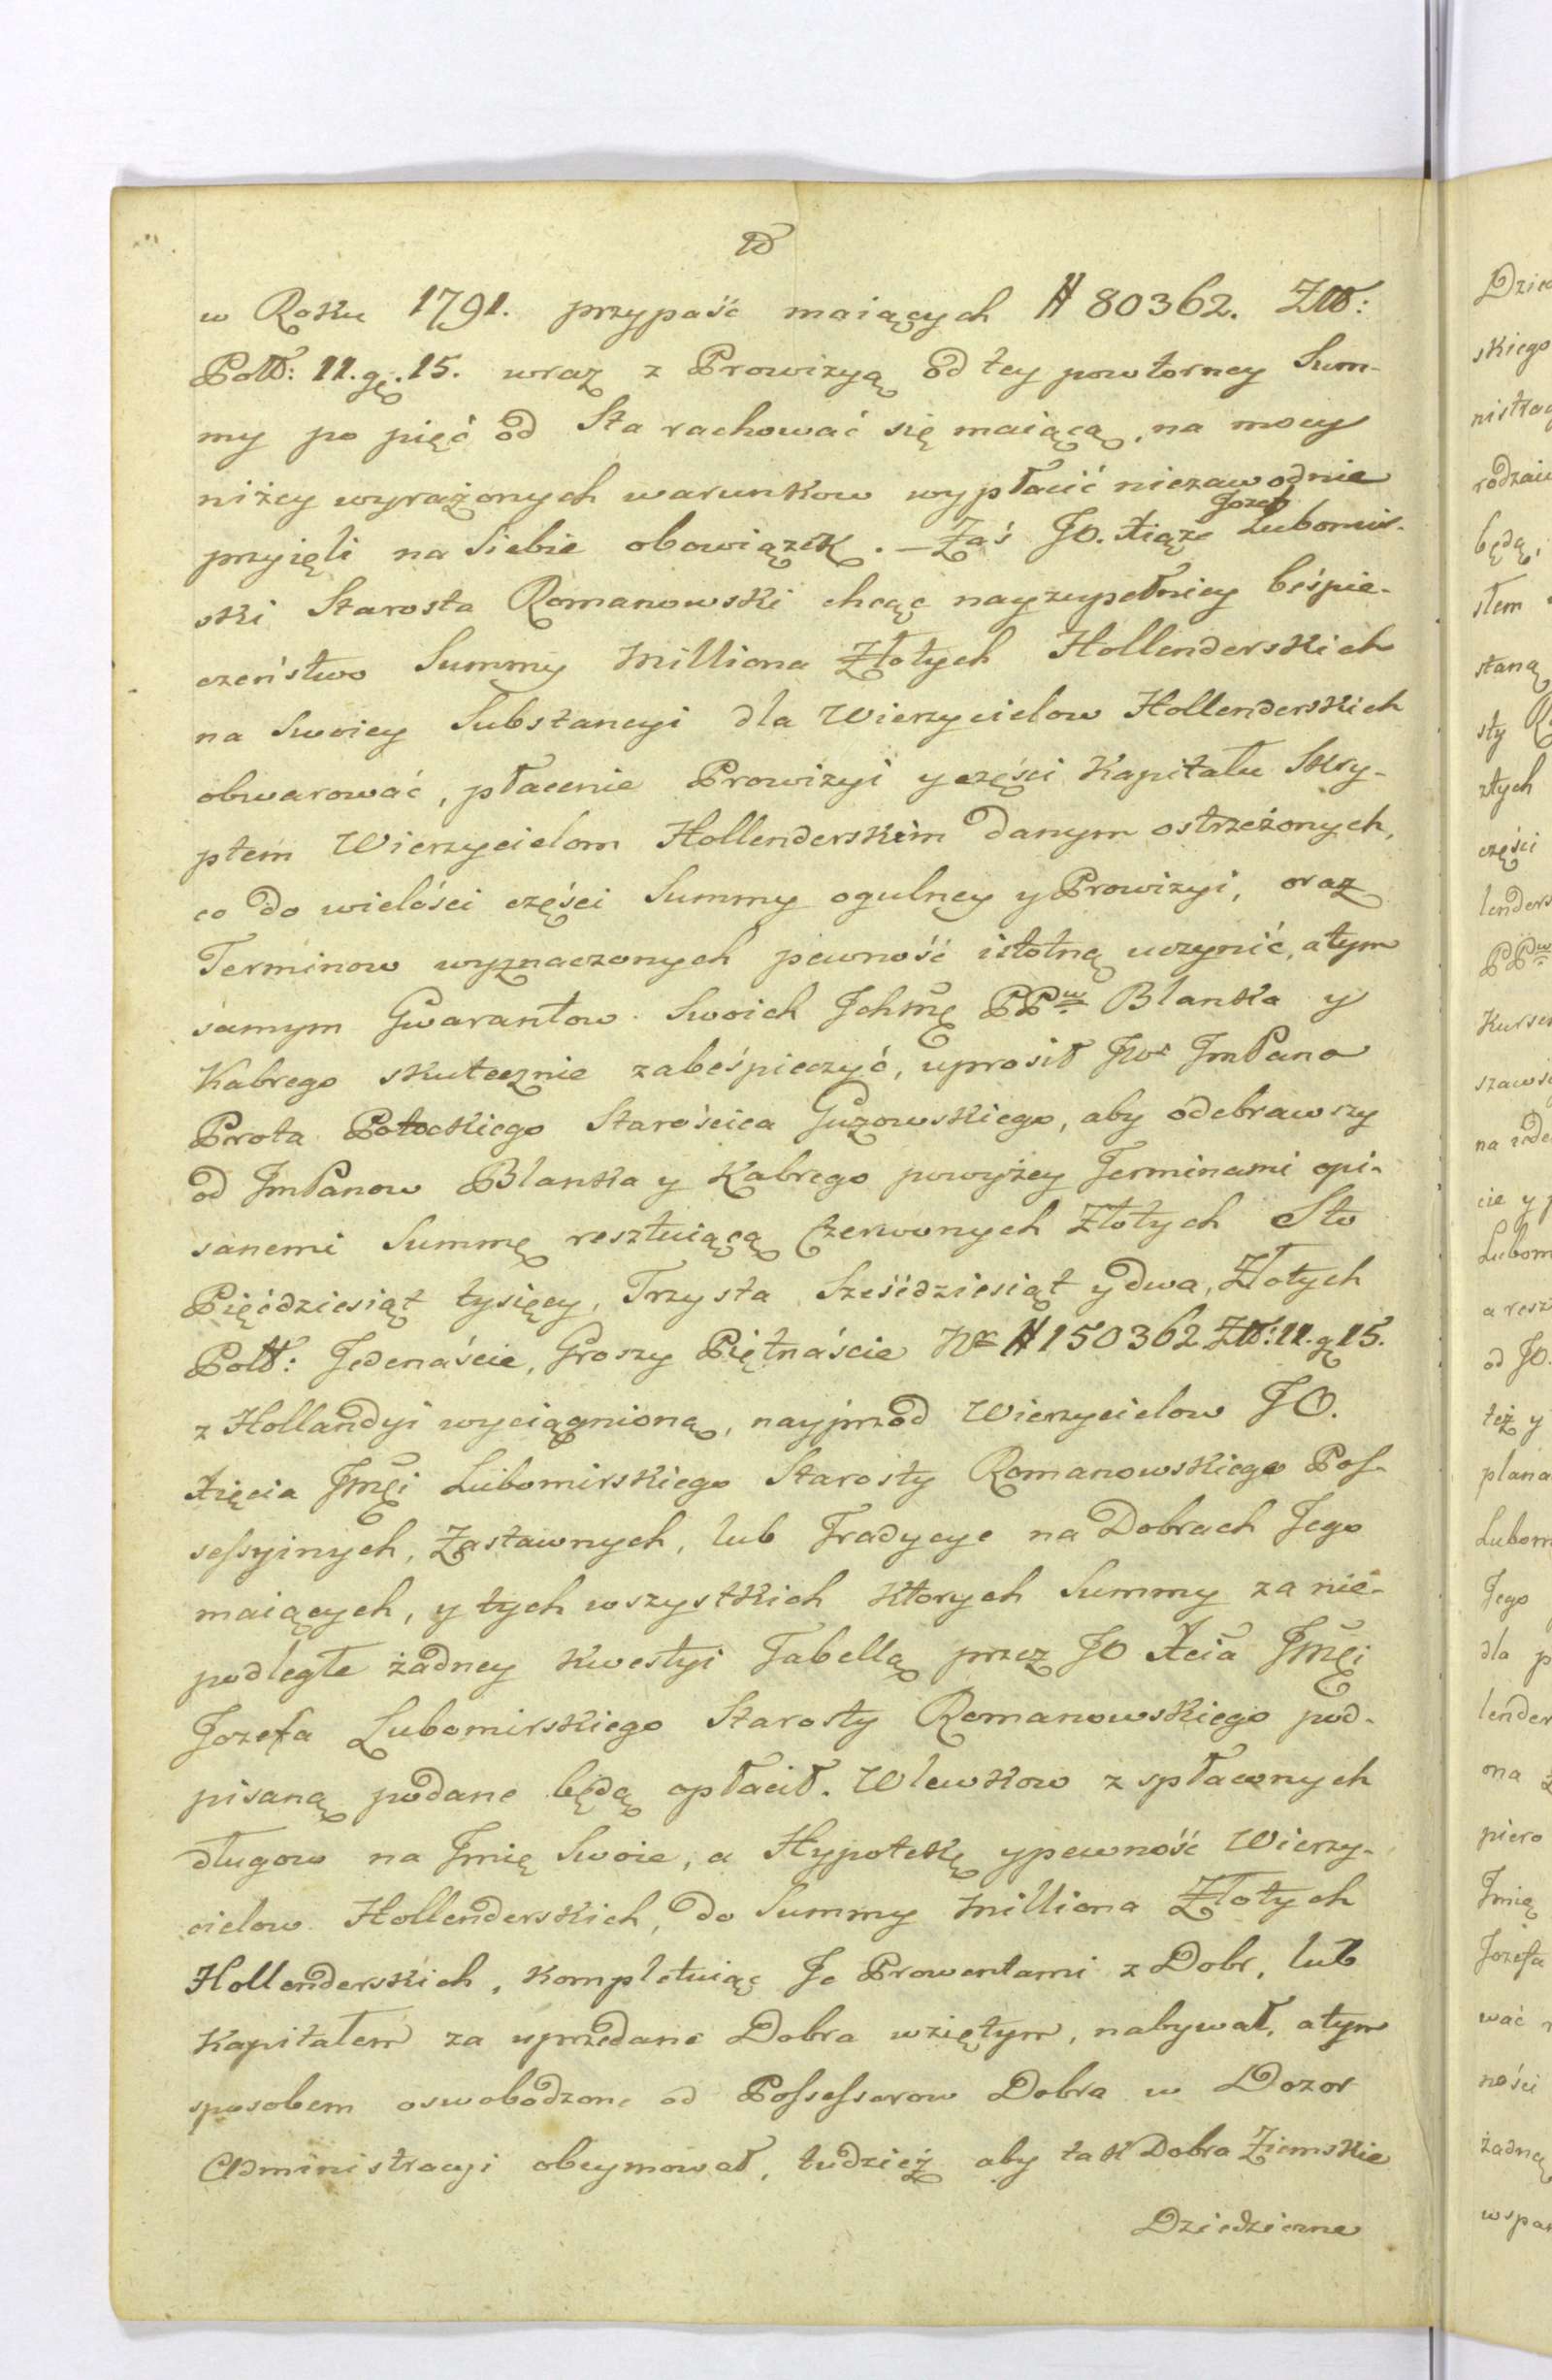 w Roku 1791. przypaść maiących # 80362. Złł:
Poll: 11. gr. 15. wraz z Prowizyą od tey powtorney Sum-
my po pięć od Sta rachować się maiącą, na mocy
niżey wyrażonych warunkow wypłacić niezawodnie
przyięli na siebie obowiązek. — Zaś JO. Xiąże Jozef Lubomir-
ski Starosta Romanowski chcąc nayzupełniey beśpie-
czeństwo Summy Milliona Złotych Hollenderskich
na Swoiey Substancyi dla Wierzycielow Hollenderskich
obwarować, płacenie Prowizyi y części Kapitału Skry-
ptem Wierzycielom Hollenderskim danym ostrzeżonych,
co do wielości części Summy ogulney y Prowizyi, oraz
Terminow wyznaczonych pewność istotną uczynić, a tym
samym Gwarantow Swoich Ichmę PPw Blanka y
Kabrego skutecznie zabeśpieczyć, uprosił JWo ImPana
Prota Potockiego Starościca Guzowskiego, aby odebrawszy
od ImPanow Blanka y Kabrego powyżey Terminami opi-
sanemi Summę resztuiącą Czerwonych Złotych Sto
Pięćdziesiąt tysięcy, Trzysta Sześćdziesiąt y dwa, Złotych
Poll: Jedenaście, Groszy Piętnaście Nr # 150362 Złł: 11. g 15.
z Hollandyi wyciągnioną, nayprzod Wierzycielow JO.
Xięcia Jmci Lubomirskiego Starosty Romanowskiego Pos-
sessyinych, Zastawnych, lub Tradycye na Dobrach Jego
maiących, y tych wszystkich ktorych Summy za nie-
podległe żadney kwestyi Tabellą przez JO Xcia Jmci
Jozefa Lubomirskiego Starosty Romanowskiego pod-
pisaną podane będą opłacił. Wlewkow z spłaconych
długow na Jmię Swoie, a Hypotekę y pewność Wierzy-
cielow Hollenderskich, do Summy Milliona Złotych
Hollenderskich, kompletuiąc Je Prowentami z Dobr, lub
Kapitałem za uprzedane Dobra wziętym, nabywał, a tym
sposobem oswobodzone od Possessorow Dobra w Dozor
Administracyi obeymował, tudzież aby tak Dobra Ziemskie
Dziedziczne